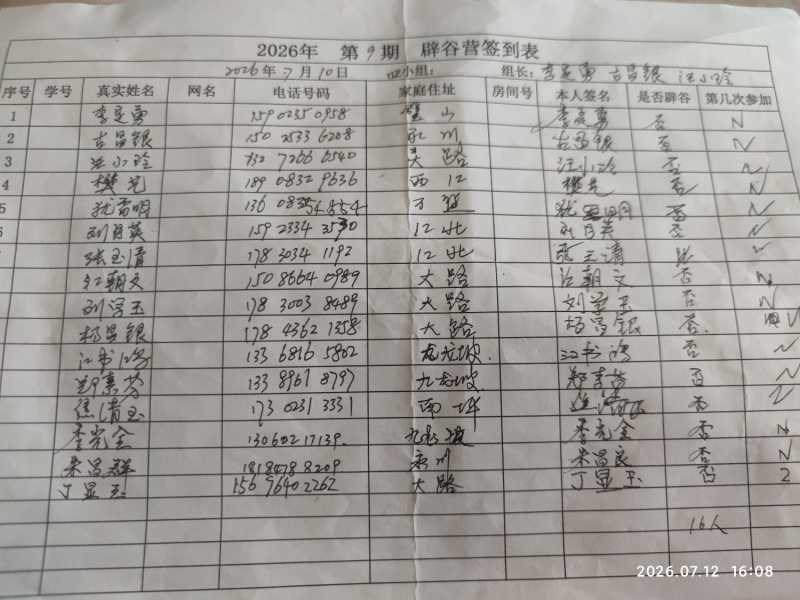 2026年 第9期 辟谷营签到表
2026年7月10日 四小组: 组长: 李定勇 古昌银 汪小玲
序号 学号 真实姓名 网名 电话号码 家庭住址 房间号 本人签名 是否辟谷 第几次参加
1 李定勇 159 0235 0958 璧山 李定勇 否 N
2 古昌银 150 2533 6208 永川 古昌银 否 N
3 汪小玲 132 7266 6540 大路 汪小玲 否 N
4 樊先 189 0832 9636 西江 樊先 否 N
5 犹雷明 136 0835 4854 万盛 犹 明 否 N
6 刘月英 159 2334 3530 江北 刘月英 否
张玉清 178 3034 1192 江北 张玉清
江朝文 150 8664 0989 大路 江朝文 否 N
刘学玉 178 3003 8489 大路 刘学玉 否 N
杨昌银 178 4362 1358 大路 杨昌银 否.
江书鸿 133 6816 5862 九龙坡 江书鸿 否 N
郑素芬 133 8961 8797 九龙坡 郑素芬 否 N
清玉 173 0231 3331 否
李光全 130 6021 7139 九龙坡 李光全 否 N
朱昌群 1818478 8209 永川 朱昌良 否 N
丁显玉 156 9640 2262 大路 丁显玉 否 2
16人
2026.07.12 16:08